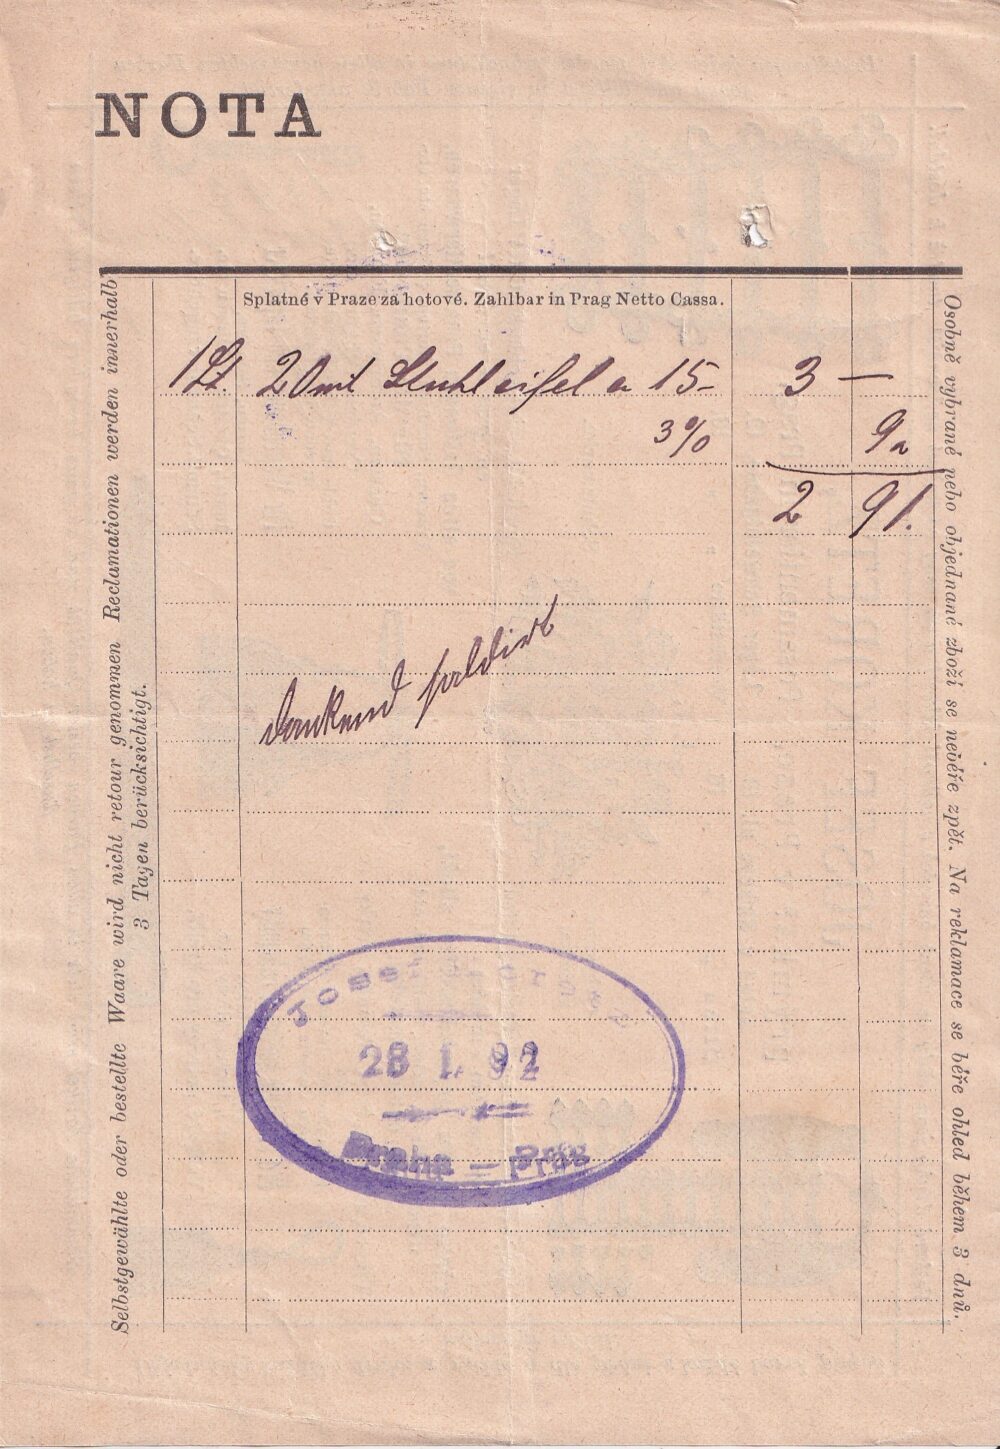 NOTA
Splatné v Praze za hotové. Zahlbar in Prag Netto Cassa.
1 St. 20 mt a 15- 3 —
3% 9
2 91.
dankend saldirt
Josef
28 1. 92
Praha — Prag
Selbstgewählte oder bestellte Waare wird nicht retour genommen Reclamationen werden innerhalb
3 Tagen berücksichtigt.
Osobně vybrané nebo objednané zboží se neběře zpět. Na reklamace se béře ohled během 3 dnů.